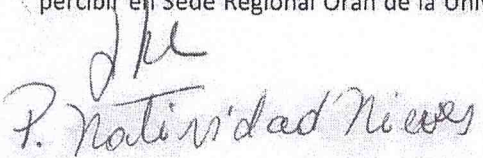 percibir en Sede Regional Orán de la Univ
P. Natividad Nieves